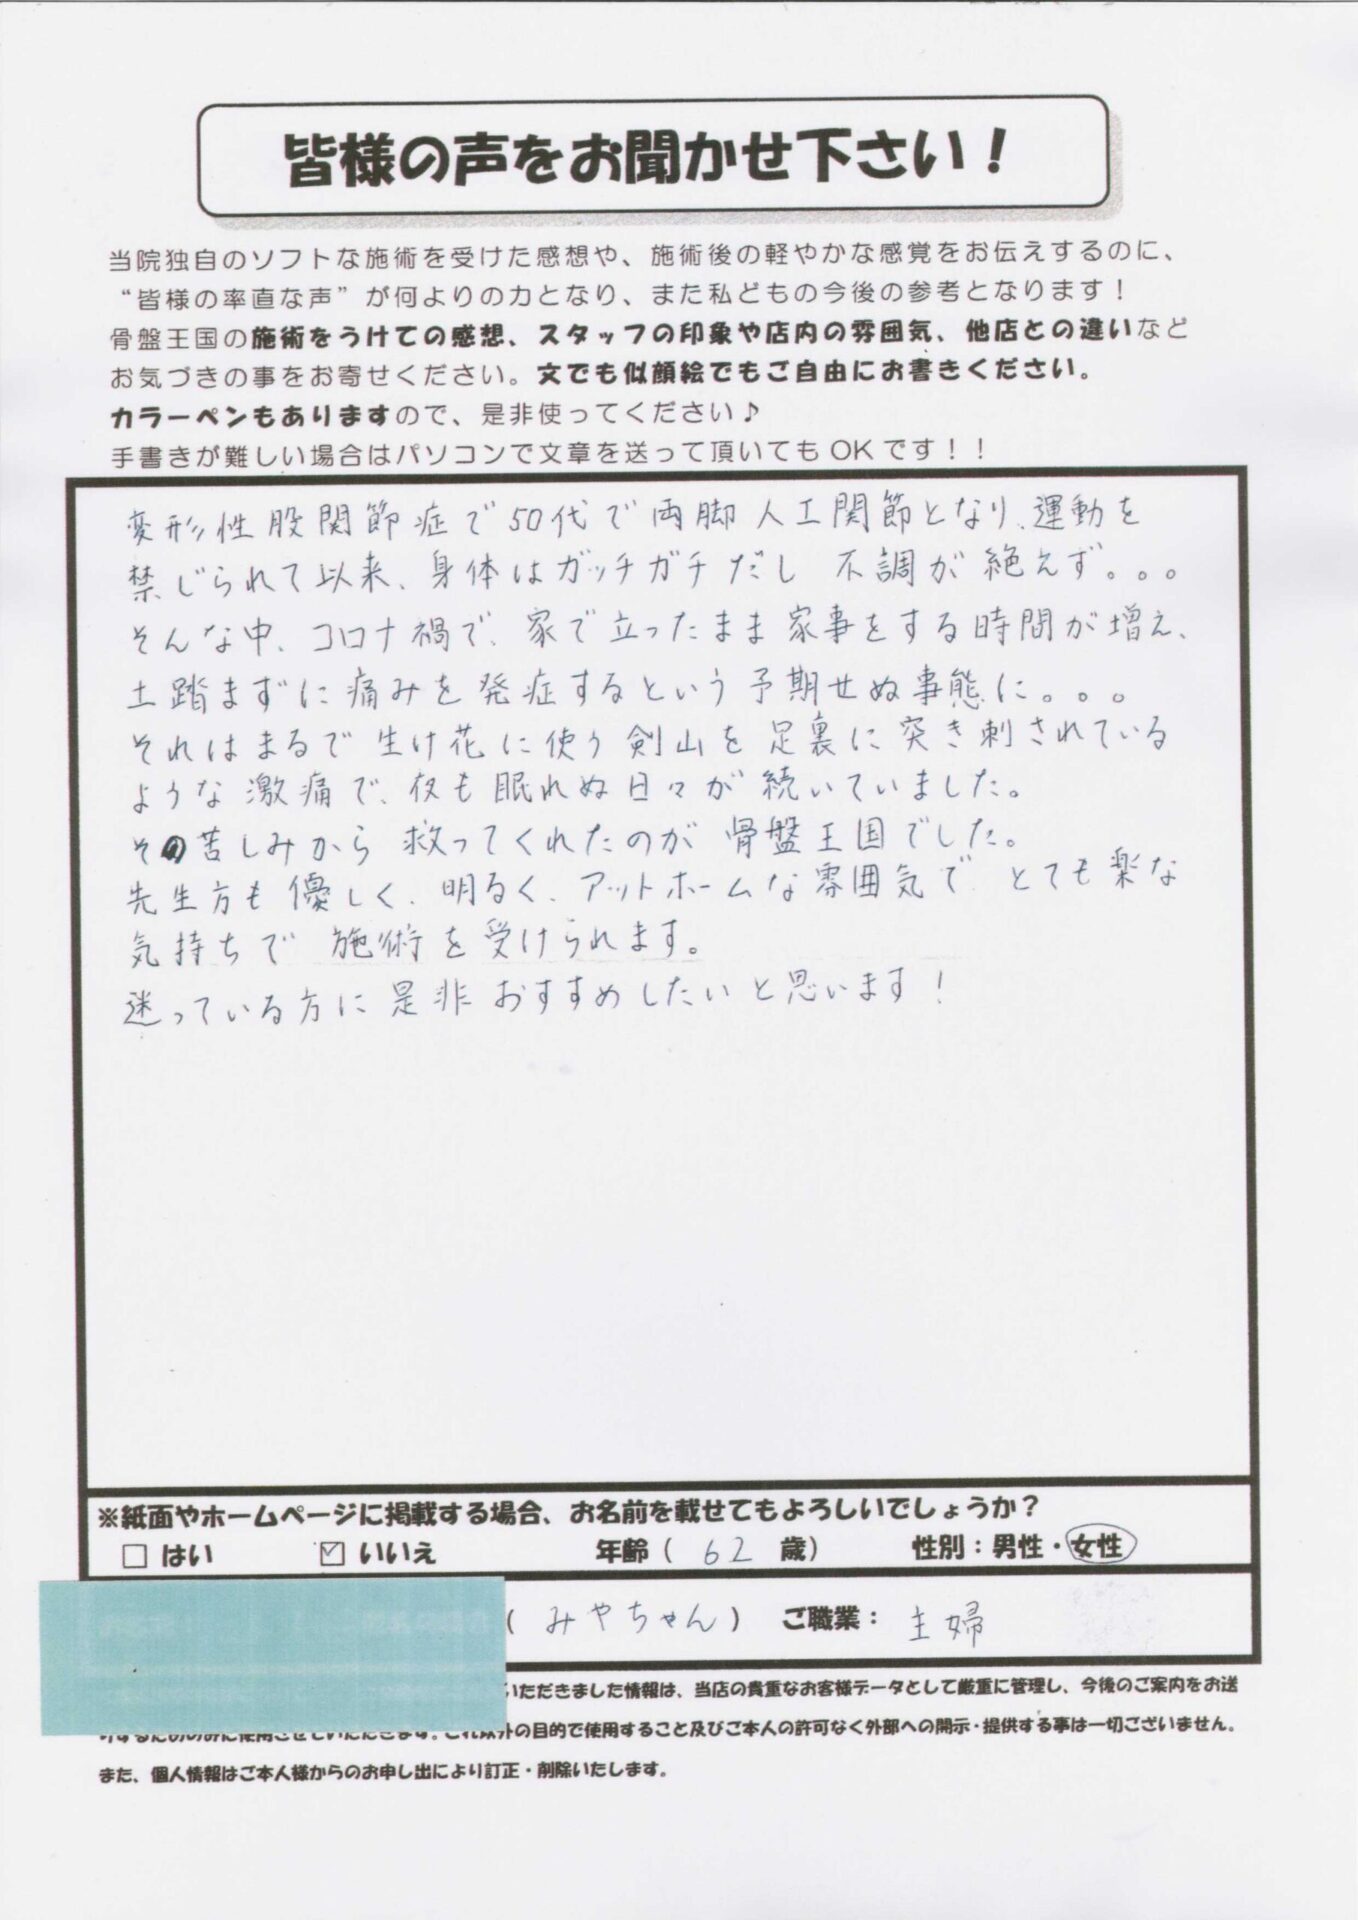 皆様の声をお聞かせ下さい！
当院独自のソフトな施術を受けた感想や、施術後の軽やかな感覚をお伝えするのに、
“皆様の率直な声”が何よりの力となり、また私どもの今後の参考となります！
骨盤王国の施術をうけての感想、スタッフの印象や店内の雰囲気、他店との違いなど
お気づきの事をお寄せください。文でも似顔絵でもご自由にお書きください。
カラーペンもありますので、是非使ってください♪
手書きが難しい場合はパソコンで文章を送って頂いてもOKです！！
変形性股関節症で50代で両脚人工関節となり、運動を
禁じられて以来、身体はガッチガチだし 不調が絶えず。。。
そんな中、コロナ禍で、家で立ったまま家事をする時間が増え、
土踏まずに痛みを発症するという予期せぬ事態に。。。
それはまるで生け花に使う剣山を足裏に突き刺されている
ような激痛で、夜も眠れぬ日々が続いていました。
その苦しみから救ってくれたのが骨盤王国でした。
先生方も優しく、明るく、アットホームな雰囲気で、とても楽な
気持ちで 施術を受けられます。
迷っている方に是非おすすめしたいと思います！
※紙面やホームページに掲載する場合、お名前を載せてもよろしいでしょうか？
□ はい ☑ いいえ 年齢（ 62 歳） 性別：男性・女性
（ みやちゃん ） ご職業： 主婦
いただきました情報は、当店の貴重なお客様データとして厳重に管理し、今後のご案内をお送
りするためのみに使用させていただきます。これ以外の目的で使用すること及びご本人の許可なく外部への開示・提供する事は一切ございません。
また、個人情報はご本人様からのお申し出により訂正・削除いたします。